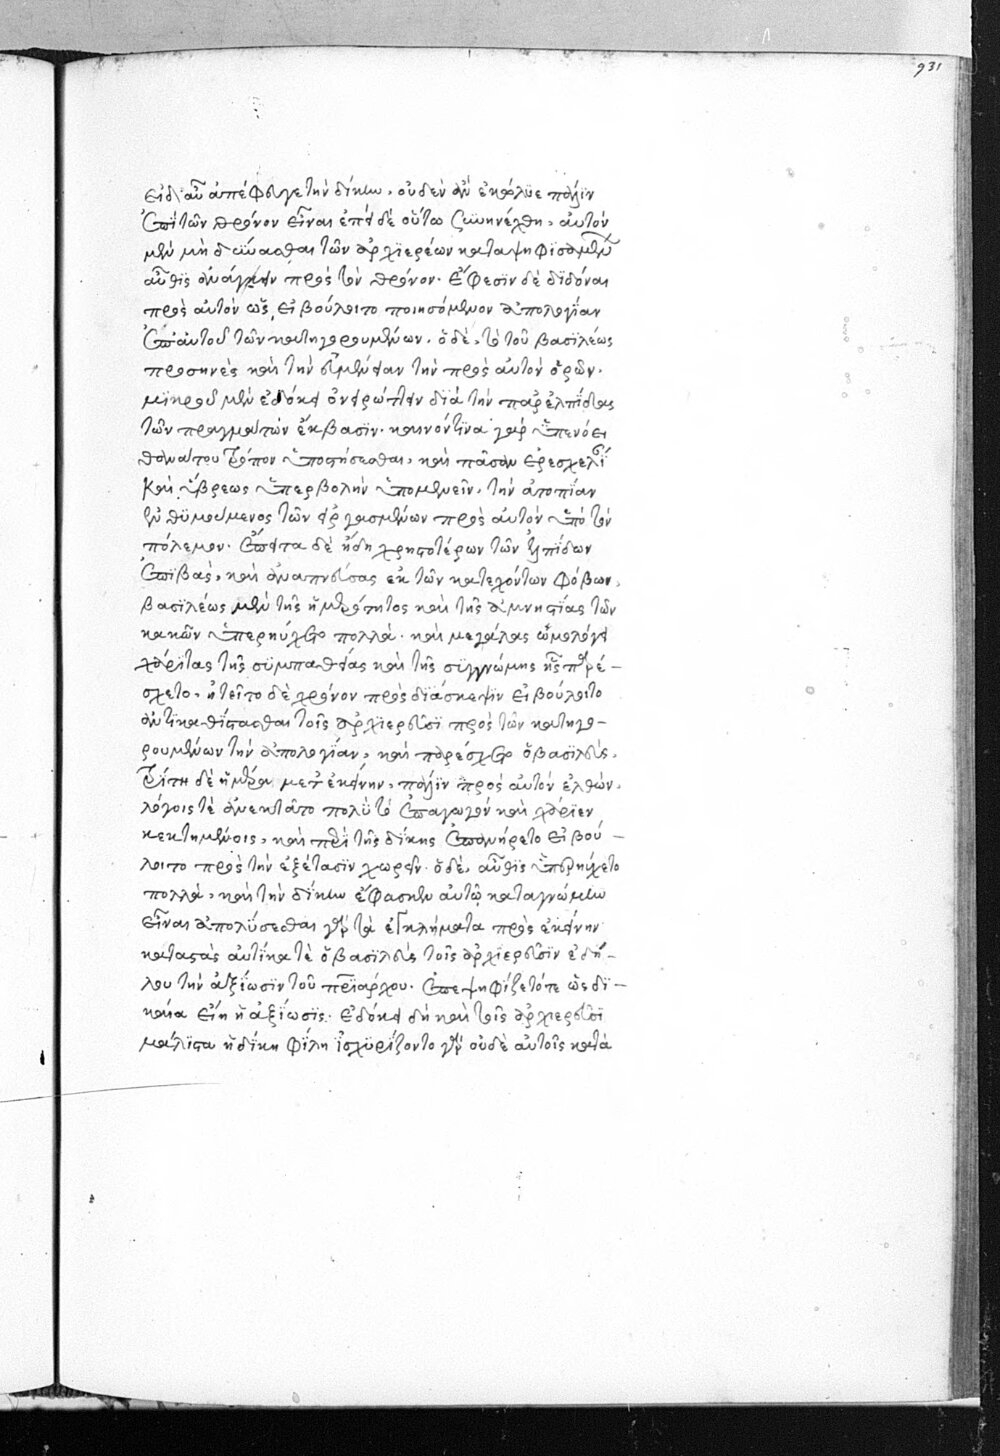 931
εἰ δ' αὖ ἀπέφυγε τὴν δίκην, οὐδὲν ἂν ἐκώλυε πάλιν
ἐπὶ τὸν θρόνον εἶναι ἐπεὶ δὲ οὕτω ξυνηνέχθη, αὐτὸν
μὲν μὴ δύνασθαι τῶν ἀρχιερέων καταψηφισαμένων
αὖθις ἀνάγειν πρὸς τὸν θρόνον. ἔφεσιν δὲ διδόναι
πρὸς αὐτὸν ὡς, εἰ βούλοιτο ποιησόμενον ἀπολογίαν
ἐπ' αὐτοῦ τῶν κατηγορουμένων. ὁ δὲ, τὸ τοῦ βασιλέως
προσηνὲς καὶ τὴν εὐμένειαν τὴν πρὸς αὐτὸν ὁρῶν,
μικροῦ μὲν ἐδόκει ὀνειρώττειν διὰ τὴν παρ' ἐλπίδας
τῶν πραγμάτων ἔκβασιν. καινόν τινα γὰρ ὑπενόει
θανάτου τρόπον ὑποστήσεσθαι, καὶ πᾶσαν ἐρεσχελίαν
καὶ ὕβρεως ὑπερβολὴν ὑπομενεῖν, τὴν ἀτοπίαν
ἐνθυμούμενος τῶν εἰργασμένων πρὸς αὐτὸν ὑπὸ τὸν
πόλεμον. ἔπειτα δὲ ἤδη χρηστοτέρων τῶν ἐλπίδων
ἐπιβὰς, καὶ ἀναπνεύσας ἐκ τῶν κατεχόντων φόβων,
βασιλέως μὲν τῆς ἡμερότητος καὶ τῆς ἀμνηστίας τῶν
κακῶν ὑπερηύχετο πολλὰ. καὶ μεγάλας ὡμολόγει
χάριτας τῆς συμπαθείας καὶ τῆς συγγνώμης ἧς παρέ-
σχετο, ᾐτεῖτο δὲ χρόνον πρὸς διάσκεψιν εἰ βούλοιτο
ἀντικαθίστασθαι τοῖς ἀρχιερεῦσι πρὸς τῶν κατηγο-
ρουμένων τὴν ἀπολογίαν, καὶ παρέσχετο ὁ βασιλεύς,
τρίτῃ δὲ ἡμέρᾳ μετ' ἐκείνην, πάλιν πρὸς αὐτὸν ἐλθών,
λόγοις τὲ ἀνεκτᾶτο πολὺ τὸ ἐπαγωγόν καὶ χάριεν
κεκτημένοις, καὶ περὶ τῆς δίκης ἐπανήρετο εἰ βού-
λοιτο πρὸς τὴν ἐξέτασιν χωρεῖν. ὁ δὲ, αὖθις ὑπερηύχετο
πολλὰ, καὶ τὴν δίκην ἔφασκεν αὐτῷ καταγνώμην
εἶναι ἀπολύσεσθαι γὰρ τὰ ἐγκλήματα πρὸς ἐκείνην
καταστὰς αὐτίκα τὲ ὁ βασιλεὺς τοῖς ἀρχιερεῦσιν ἐδή-
λου τὴν ἀξίωσιν τοῦ πατριάρχου. ἐπεψηφίζετό τε ὡς δι-
καία εἴη ἡ ἀξίωσις. ἐδόκει δὴ καὶ τοῖς ἀρχιερεῦσι
μάλιστα ἡ δίκη φίλη ἰσχυρίζοντο γὰρ οὐδὲ αὐτοῖς κατὰ